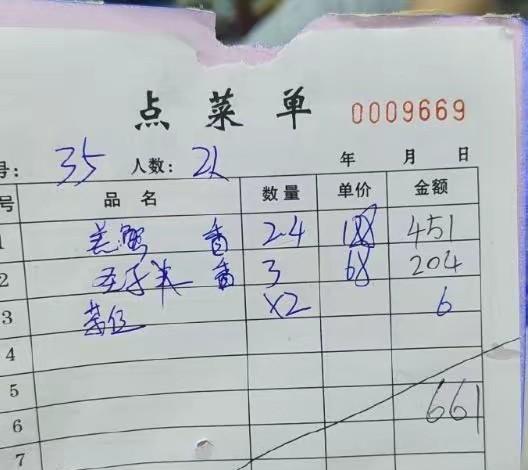 点菜单 0009669
号: 35 人数: 2位 年 月 日
号 品名 数量 单价 金额
1 羔蟹 香 2.4 188 451
2 香 3 68 204
3 茶位 X2 6
4
5
6 661
7